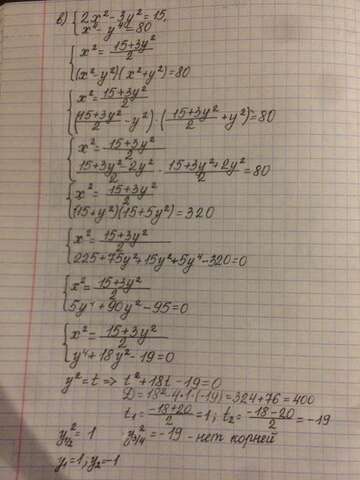 в) { 2x² - 3y² = 15,
x⁴ - y⁴ = 80
{ x² = (15+3y²)/2
(x²-y²)(x²+y²) = 80
{ x² = (15+3y²)/2
((15+3y²)/2 - y²) · ((15+3y²)/2 + y²) = 80
{ x² = (15+3y²)/2
(15+3y²-2y²)/2 · (15+3y²+2y²)/2 = 80
{ x² = (15+3y²)/2
(15+y²)(15+5y²) = 320
{ x² = (15+3y²)/2
225+75y²+15y²+5y⁴-320=0
{ x² = (15+3y²)/2
5y⁴+90y²-95=0
{ x² = (15+3y²)/2
y⁴+18y²-19=0
y² = t => t²+18t-19=0
D = 18²-4·1·(-19) = 324+76 = 400
t₁ = (-18+20)/2 = 1; t₂ = (-18-20)/2 = -19
y²₁/₂ = 1 y²₃/₄ = -19 - нет корней
y₁=1; y₂=-1